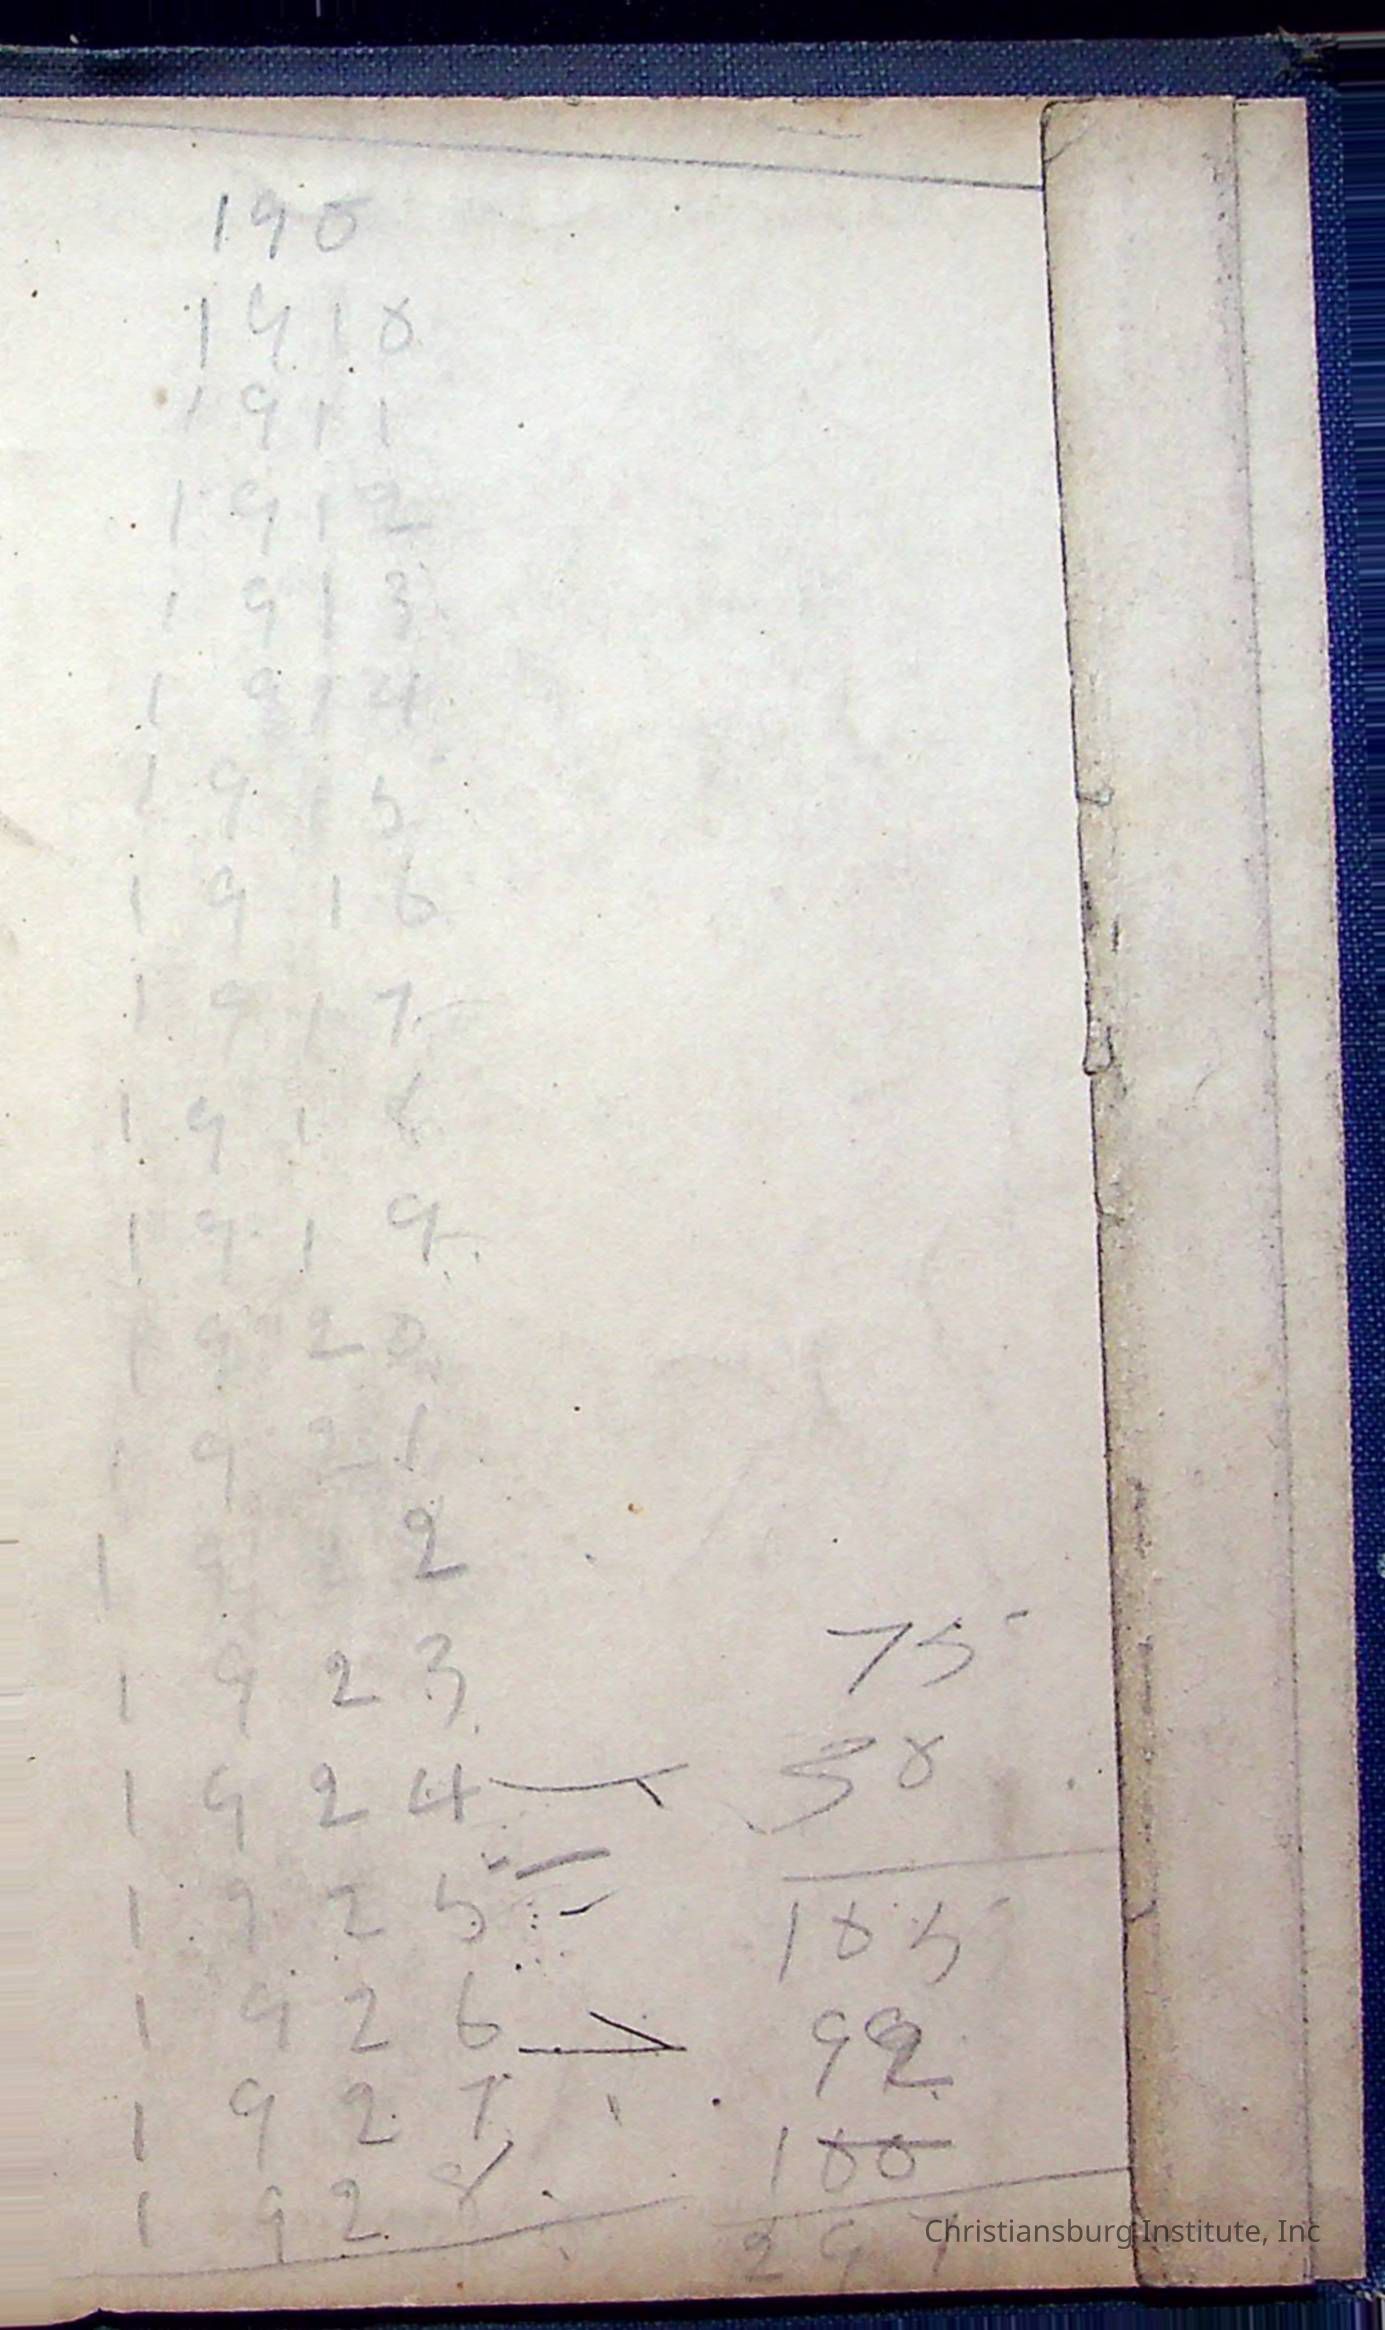 190
1910
1911
1912
1913
1914
1915
1916
1917
1918
1919
1920
1921
1922
1923
1924
1925
1926
1927
1928
75
30
105
92
100
297
Christiansburg Institute, Inc